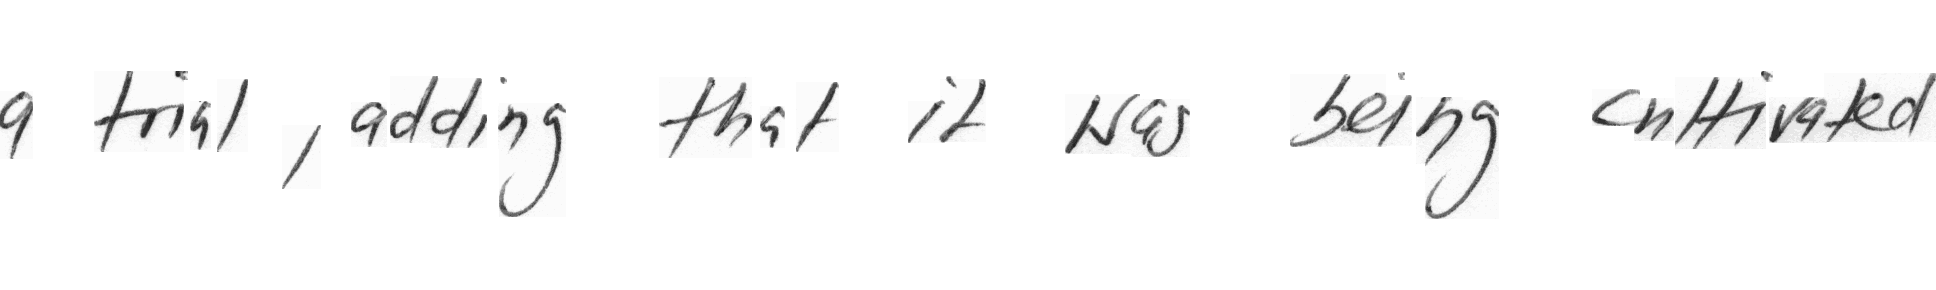 a trial, adding that it was being cultivated